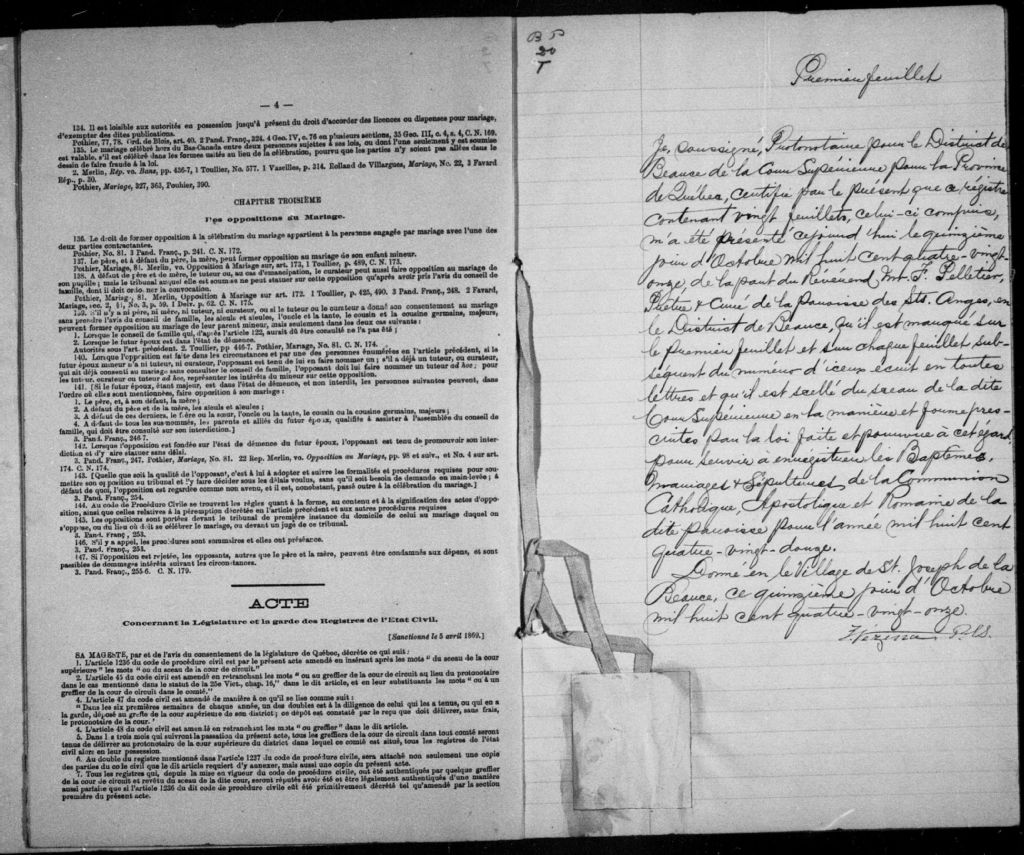 — 4 —
134. Il est loisible aux autorités en possession jusqu'à présent du droit d'accorder des licences ou dispenses pour mariage,
d'exempter des dites publications.
Pothier, 77, 78. Ord. de Blois, art. 40. 2 Pand. Franç., 324. 4 Geo. IV, c. 76 en plusieurs sections, 35 Geo. III, c. 4, s. 4, C. N. 169.
135. Le mariage célébré hors du Bas-Canada entre deux personnes sujettes à ses lois, ou dont l'une seulement y est soumise
est valable, s'il est célébré dans les formes usités au lieu de la célébration, pourvu que les parties n'y soient pas allées dans le
dessin de faire fraude à la loi.
2. Merlin, Rép. vo. Bans, pp. 456-7, 1 Toullier, No. 577. 1 Vaseilles, p. 314. Rolland de Villargues, Mariage, No. 22, 3 Favard
Rép., p. 30.
Pothier, Mariage, 327, 363, Pouhier, 390.
CHAPITRE TROISIÈME
Des oppositions au Mariage.
136. Le droit de former opposition à la célébration du mariage appartient à la personne engagée par mariage avec l'une des
deux parties contractantes.
Pothier, No. 81. 3 Pand. Franç., p. 241. C. N. 172.
137. Le père, et à défaut du père, la mère, peut former opposition au mariage de son enfant mineur.
Pothier, Mariage, 81. Merlin, vo. Opposition à Mariage sur art. 173, 1 Toullier, p. 489, C. N. 173.
138. A défaut de père et de mère, le tuteur ou, au cas d'émancipation, le curateur peut aussi faire opposition au mariage de
son pupille ; mais le tribunal auquel elle est soumise ne peut statuer sur cette opposition qu'après avoir pris l'avis du conseil de
famille, dont il doit ordonner la convocation.
Pothier, Mariage, 81. Merlin, Opposition à Mariage sur art. 172. 1 Toullier, p. 425, 490. 3 Pand. Franç., 248. 2 Favard,
Mariage, sec. 2, 41, No. 3, p. 59. 1 Delv. p. 62. C. N. 175.
139. S'il n'y a ni père, ni mère, ni tuteur, ni curateur, ou si le tuteur ou le curateur a donné son consentement au mariage
sans prendre l'avis du conseil de famille, les aïeuls et aïeules, l'oncle et la tante, le cousin et la cousine germains, majeurs,
peuvent former opposition au mariage de leur parent mineur, mais seulement dans les deux cas suivants :
1. Lorsque le conseil de famille qui, d'après l'article 122, aurait dû être consulté ne l'a pas été ;
2. Lorsque le futur époux est dans l'état de démence.
Autorités sous l'art. précédent. 2. Toullier, pp 446-7. Pothier, Mariage, No. 81. C. N. 174.
140. Lorsque l'opposition est faite dans les circonstances et par une des personnes énumérées en l'article précédent, si le
futur époux mineur n'a ni tuteur, ni curateur, l'opposant est tenu de lui en faire nommer un ; s'il a déjà un tuteur, ou curateur,
qui ait déjà consenti au mariage sans consulter le conseil de famille, l'opposant doit lui faire nommer un tuteur ad hoc ; pour
les tuteur, curateur ou tuteur ad hoc, représenter les intérêts du mineur sur cette opposition.
141. [Si le futur époux, étant majeur, est dans l'état de démence, et non interdit, les personnes suivantes peuvent, dans
l'ordre où elles sont mentionnées, faire opposition à son mariage :
1. Le père, et, à son défaut, la mère ;
2. A défaut du père et de la mère, les aïeuls et aïeules ;
3. A défaut de ces derniers, le frère ou la sœur, l'oncle ou la tante, le cousin ou la cousine germains, majeurs ;
4. A défaut de tous les sus-nommés, les parents et alliés du futur époux, qualifiés à assister à l'assemblée du conseil de
famille, qui doit être consulté sur son interdiction.]
3. Pand Franç., 246-7.
142. Lorsque l'opposition est fondée sur l'état de démence du futur époux, l'opposant est tenu de promouvoir son inter-
diction et d'y faire statuer sans délai.
3. Pand. Franç., 247. Pothier, Mariage, No. 81. 22 Rep. Merlin, vo. Opposition au Mariage, pp. 98 et suiv., et No. 4 sur art.
174. C. N. 174.
143. [Quelle que soit la qualité de l'opposant, c'est à lui à adopter et suivre les formalités et procédures requises pour sou-
mettre son opposition au tribunal et l'y faire décider sous les délais voulus, sans qu'il soit besoin de demande en main-levée ; à
défaut de quoi, l'opposition est regardée comme non avenue, et il est, nonobstant, passé outre à la célébration du mariage.]
3. Pand. Franç., 254.
144. Au code de Procédure Civile se trouvent les règles quant à la forme, au contenu et à la signification des actes d'oppo-
sition, ainsi que celles relatives à la péremption décrétée en l'article précédent et aux autres procédures requises
145. Les oppositions sont portées devant le tribunal de première instance du domicile de celui au mariage duquel on
s'oppose, ou du lieu où doit se célébrer le mariage, ou devant un juge de ce tribunal.
3. Pand. Franç., 253.
146. S'il y a appel, les procédures sont sommaires et elles ont préséance.
3. Pand. Franç., 253.
147. Si l'opposition est rejetée, les opposants, autres que le père et la mère, peuvent être condamnés aux dépens, et sont
passibles de dommages intérêts suivant les circonstances.
3. Pand. Franç., 255-6. C. N. 179.
ACTE
Concernant la Législature et la garde des Registres de l'Etat Civil.
[Sanctionné le 5 avril 1869.]
SA MAGESTE, par et de l'avis du consentement de la législature de Québec, décrète ce qui suit :
1. L'article 1236 du code de procédure civil est par le présent acte amendé en insérant après les mots " du sceau de la cour
supérieure " les mots " ou du sceau de la cour de circuit."
2. L'article 45 du code civil est amendé en retranchant les mots " ou au greffier de la cour de circuit au lieu du protonotaire
dans le cas mentionné dans le statut de la 25e Vict., chap. 16," dans le dit article, et en leur substituants les mots " ou à un
greffier de la cour de circuit dans le comté."
4. L'article 47 du code civil est amendé de manière à ce qu'il se lise comme suit :
" Dans les six premières semaines de chaque année, un des doubles est à la diligence de celui qui les a tenus, ou qui en a
la garde, déposé au greffe de la cour supérieure de son district ; ce dépôt est constaté par le reçu que doit délivrer, sans frais,
le protonotaire de la cour. "
4. L'article 48 du code civil est amendé en retranchant les mots " ou greffier " dans le dit article.
5. Dans les trois mois qui suivront la passation du présent acte, tous les greffiers de la cour de circuit dans tout comté seront
tenus de délivrer au protonotaire de la cour supérieure du district dans lequel ce comté est situé, tous les registres de l'état
civil alors en leur possession.
6. Au double du registre mentionné dans l'article 1237 du code de procédure civile, sera attaché non seulement une copie
des parties du code civil que le dit article requiert d'y annexer, mais aussi une copie du présent acte.
7. Tous les registres qui, depuis la mise en vigueur du code de procédure civile, ont été authentiqués par quelque greffier
de la cour de circuit et revêtu du sceau de la dite cour, seront réputés avoir été et être légalement authentiqués d'une manière
aussi parfaite que si l'article 1236 du dit code de procédure civile eût été primitivement décrété tel qu'amendé par la section
première du présent acte.
B P
20
T
Premier feuillet
Je, soussigné, Protonotaire pour le District de
Beauce de la Cour Supérieure pour la Province
de Québec, certifie par le présent que ce régistre
contenant vingt feuillets, celui-ci compris,
m'a été présenté cejourd'hui le quinzième
jour d'Octobre mil huit cent quatre-vingt-
onze, de la part du Révérend F. Pelletier,
Prêtre & Curé de la Paroisse des Sts. Anges, en
le District de Beauce, qu'il est marqué sur
le premier feuillet et sur chaque feuillet sub-
séquent du numéro d'iceux écrit en toutes
lettres et qu'il est scellé du sceau de la dite
Cour Supérieure en la manière et forme pres-
crites par la loi faite et pourvue à cet égard
pour servir à enregistrer les Baptêmes,
Mariages & Sépultures de la Communion
Catholique, Apostolique et Romaine de la
dite paroisse pour l'année mil huit cent
quatre-vingt-douze.
Donné en le Village de St. Joseph de la
Beauce, ce quinzième jour d'Octobre
mil huit cent quatre-vingt-onze.
Vézina P.C.S.